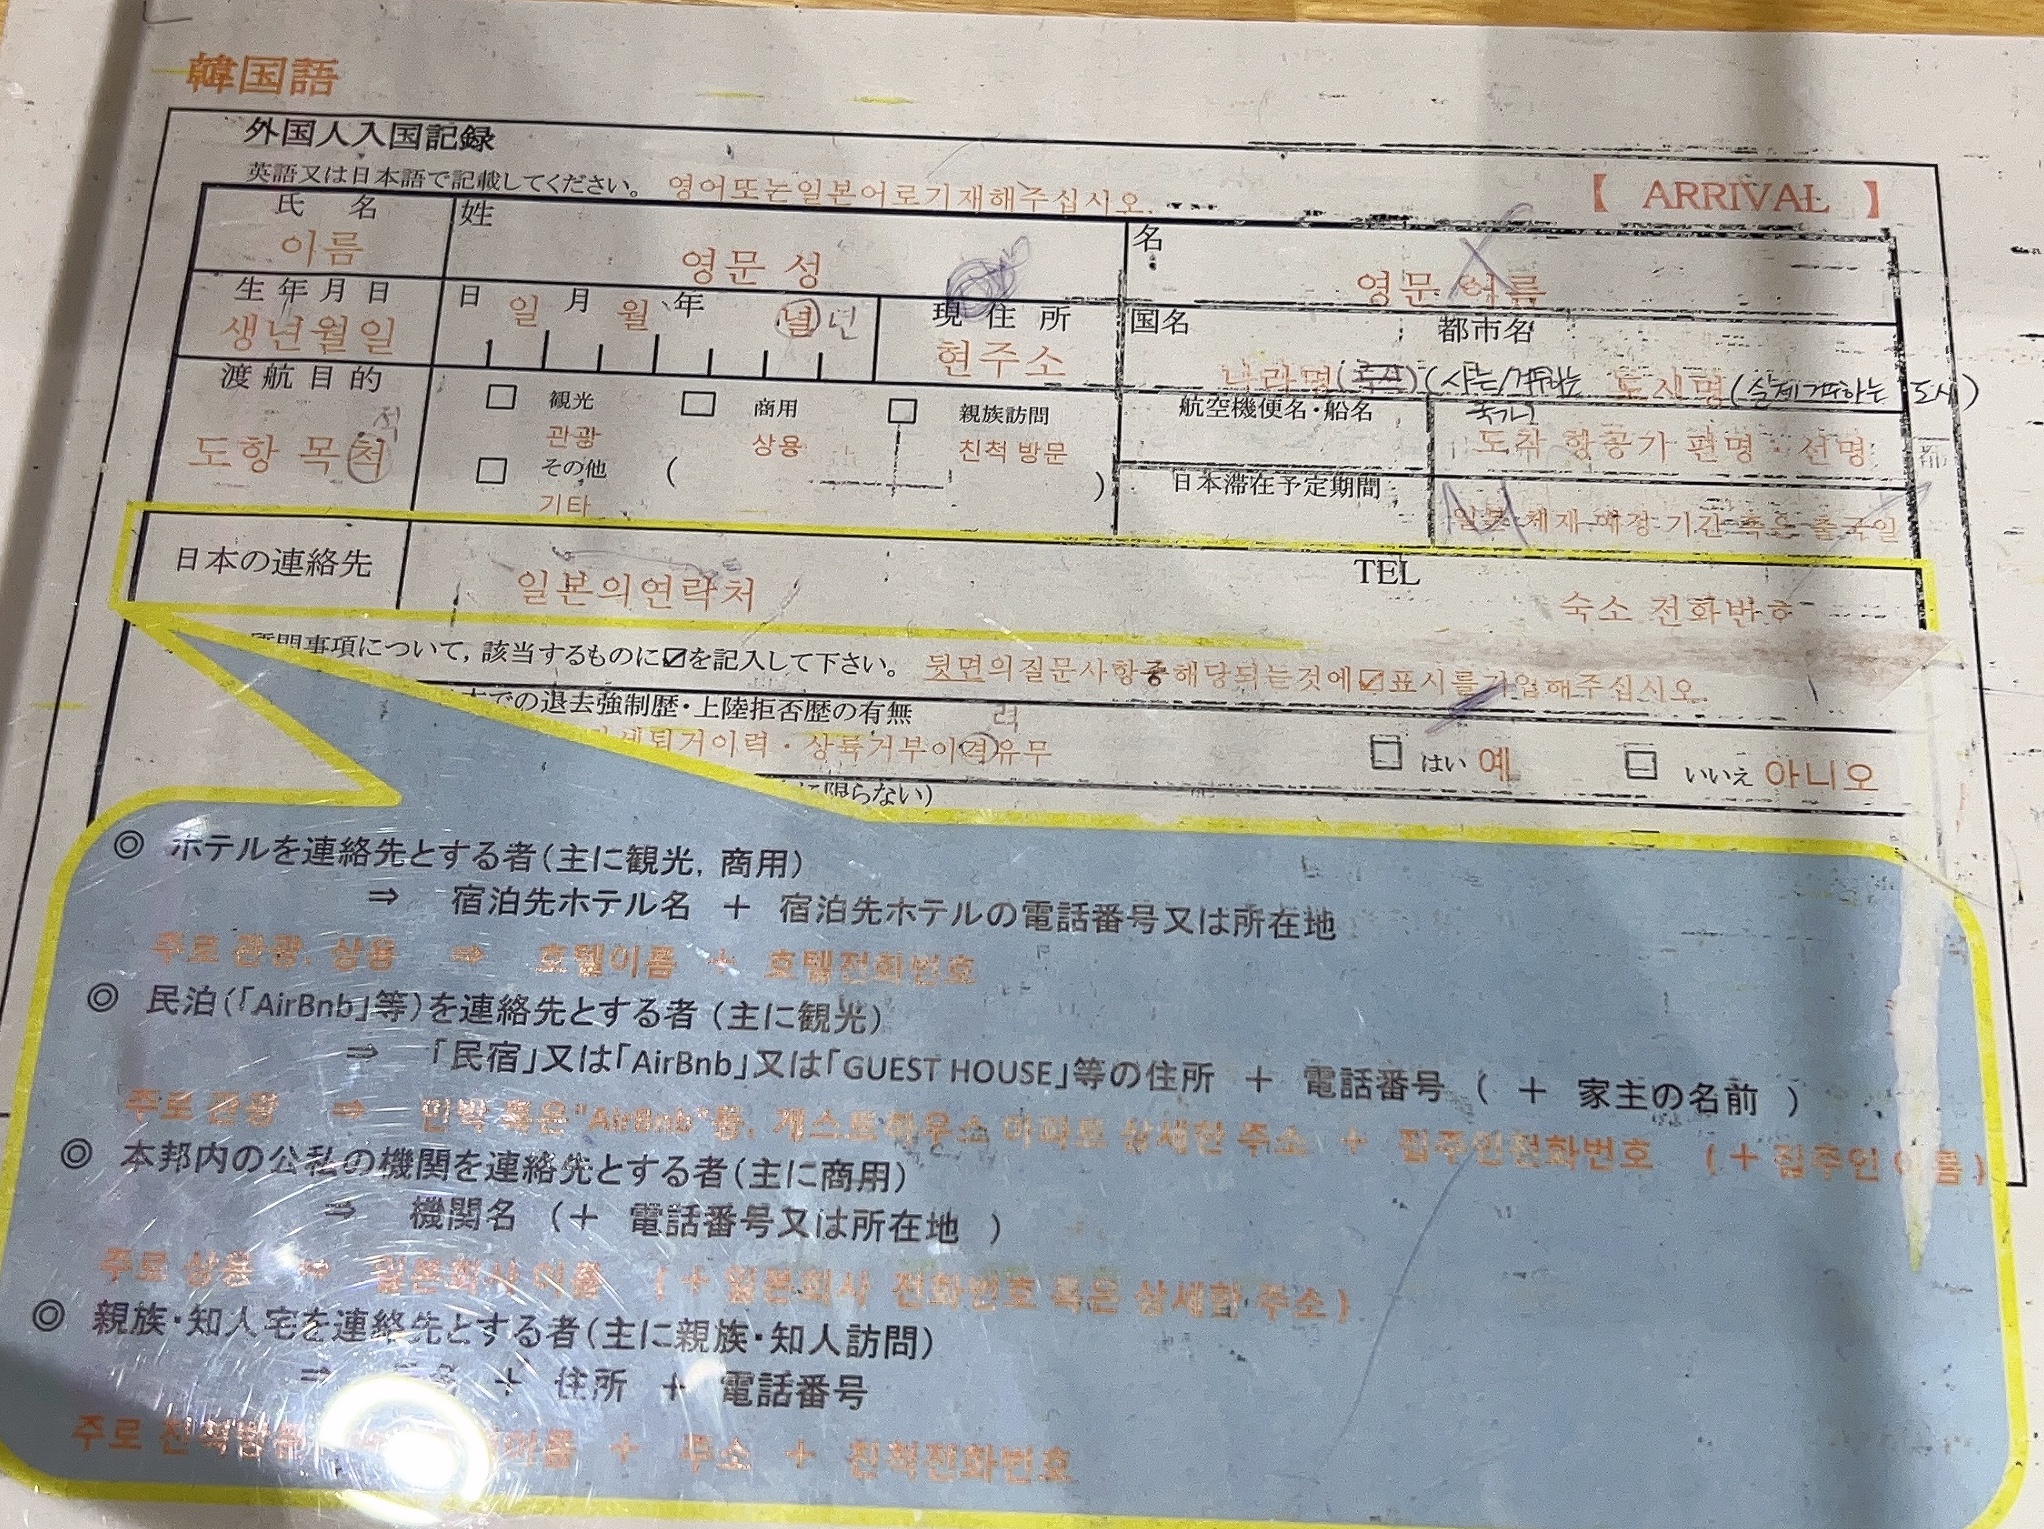 韓国語
外国人入国記録
英語又は日本語で記載してください。 영어또는일본어로기재해주십시오.
【 ARRIVAL 】
氏 名 姓 名
이름 영문 성 영문 이름
生 年 月 日 日 일 月 월 年 년 現 住 所 国名 都市名
생년월일 현주소 나라명 (사는/거주하는 국가) 도시명 (실제 거주하는 도시)
渡 航 目 的 観光 商用 親族訪問 航空機便名・船名
도항 목척 적 관광 상용 친척 방문 도착 항공기 편명・선명
その他 ( ) 日本滞在予定期間
기타 일본 체재 예정 기간 혹은 출국일
日本の連絡先 TEL
일본의연락처 숙소 전화번호
質問事項について, 該当するものに☑を記入して下さい。 뒷면의질문사항중해당되는것에☑표시를기입해주십시오.
での退去強制歴・上陸拒否歴の有無
퇴거이력・상륙거부이력유무 력
はい 예 いいえ 아니오
に限らない)
◎ ホテルを連絡先とする者(主に観光, 商用)
⇒ 宿泊先ホテル名 + 宿泊先ホテルの電話番号又は所在地
주로 관광, 상용 ⇒ 호텔이름 + 호텔전화번호
◎ 民泊(「AirBnb」等)を連絡先とする者 (主に観光)
⇒ 「民宿」又は「AirBnb」又は「GUEST HOUSE」等の住所 + 電話番号 ( + 家主の名前 )
주로 관광 ⇒ 민박 혹은"AirBnb"등, 게스트하우스 아파트 상세한 주소 + 집주인전화번호 (+ 집주인 이름)
◎ 本邦内の公私の機関を連絡先とする者(主に商用)
⇒ 機関名 (+ 電話番号又は所在地 )
주로 상용 ⇒ 일본회사 이름 (+ 일본회사 전화번호 혹은 상세한 주소)
◎ 親族・知人宅を連絡先とする者(主に親族・知人訪問)
⇒ + 住所 + 電話番号
주로 친척방문 이름 + 주소 + 친척전화번호